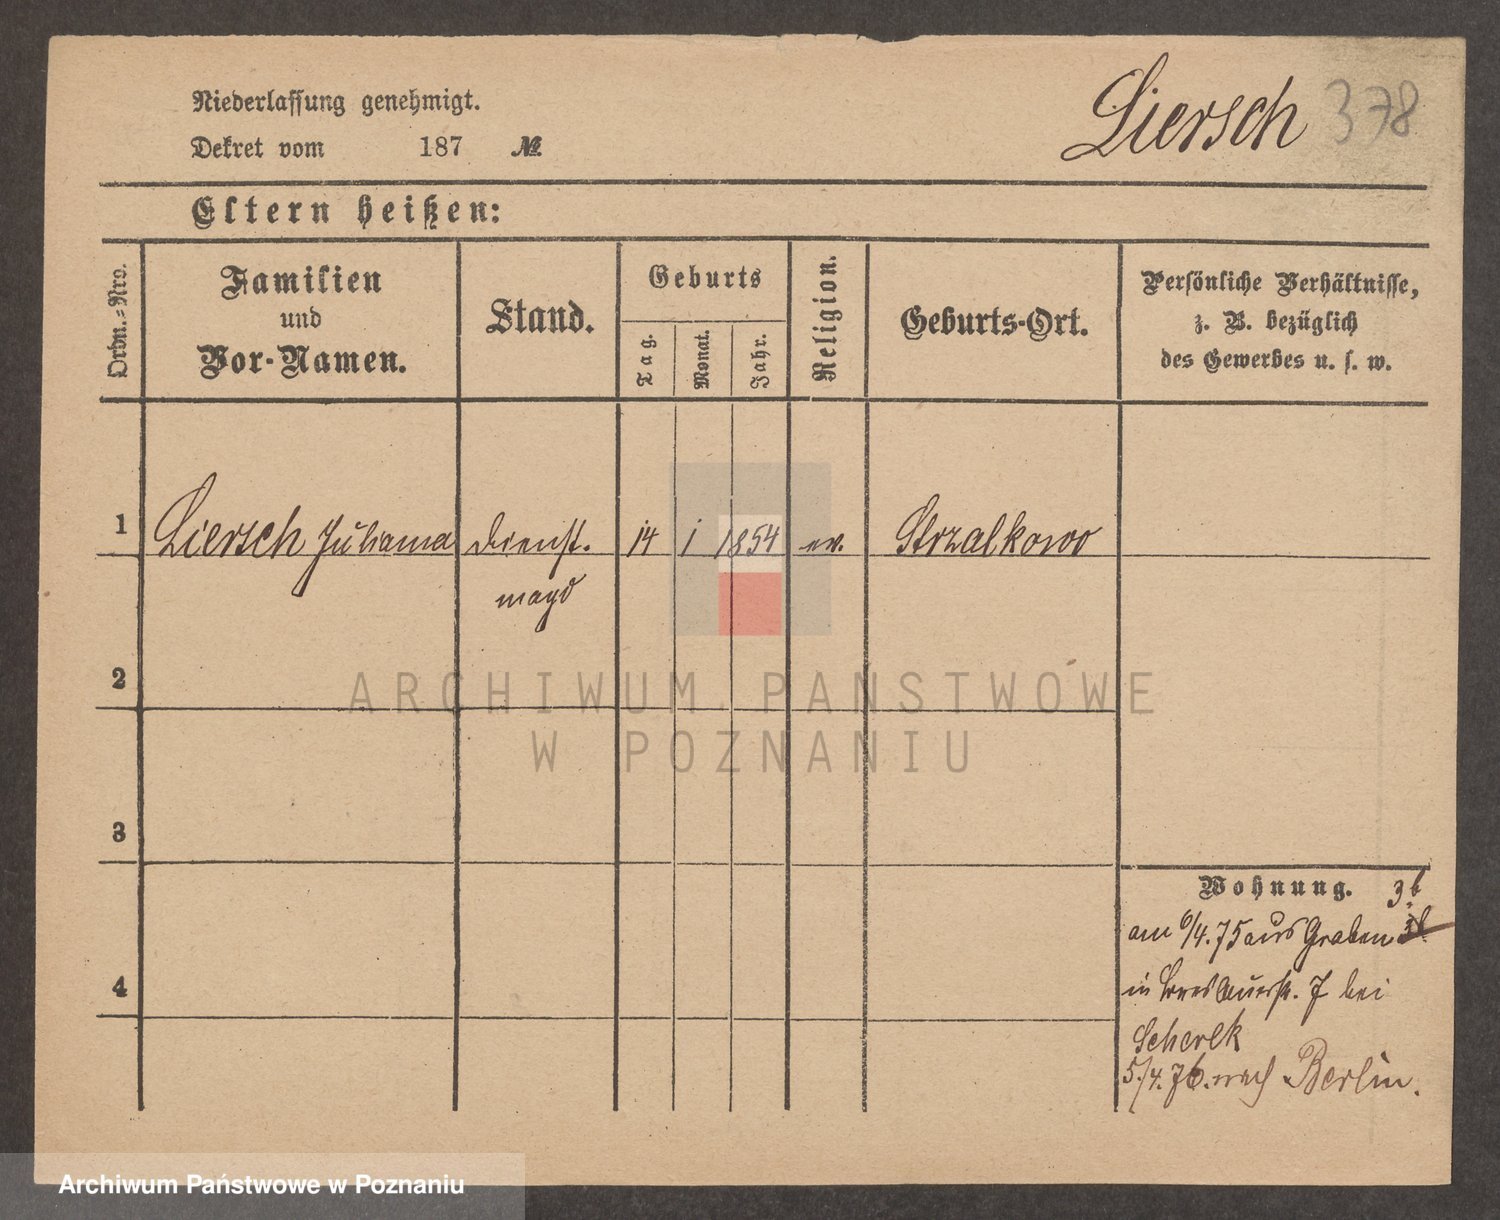 Niederlassung genehmigt.
Dekret vom 187 №
Liersch 378
Eltern heißen:
Ordn.-Nro.
Familien
und
Vor-Namen.
Stand.
Geburts
Tag.
Monat.
Jahr.
Religion.
Geburts-Ort.
Persönliche Verhältnisse,
z. B. bezüglich
des Gewerbes u. s. w.
1 Liersch Juliana Dienst- 14 1 1854 ev. Strzalkowo
magd
2
ARCHIWUM PAŃSTWOWE
W POZNANIU
3
Wohnung. 3b
am 6/4.75 aus Graben
4
in Breslauerstr. 7 bei
5./4.76. nach Berlin.
Archiwum Państwowe w Poznaniu